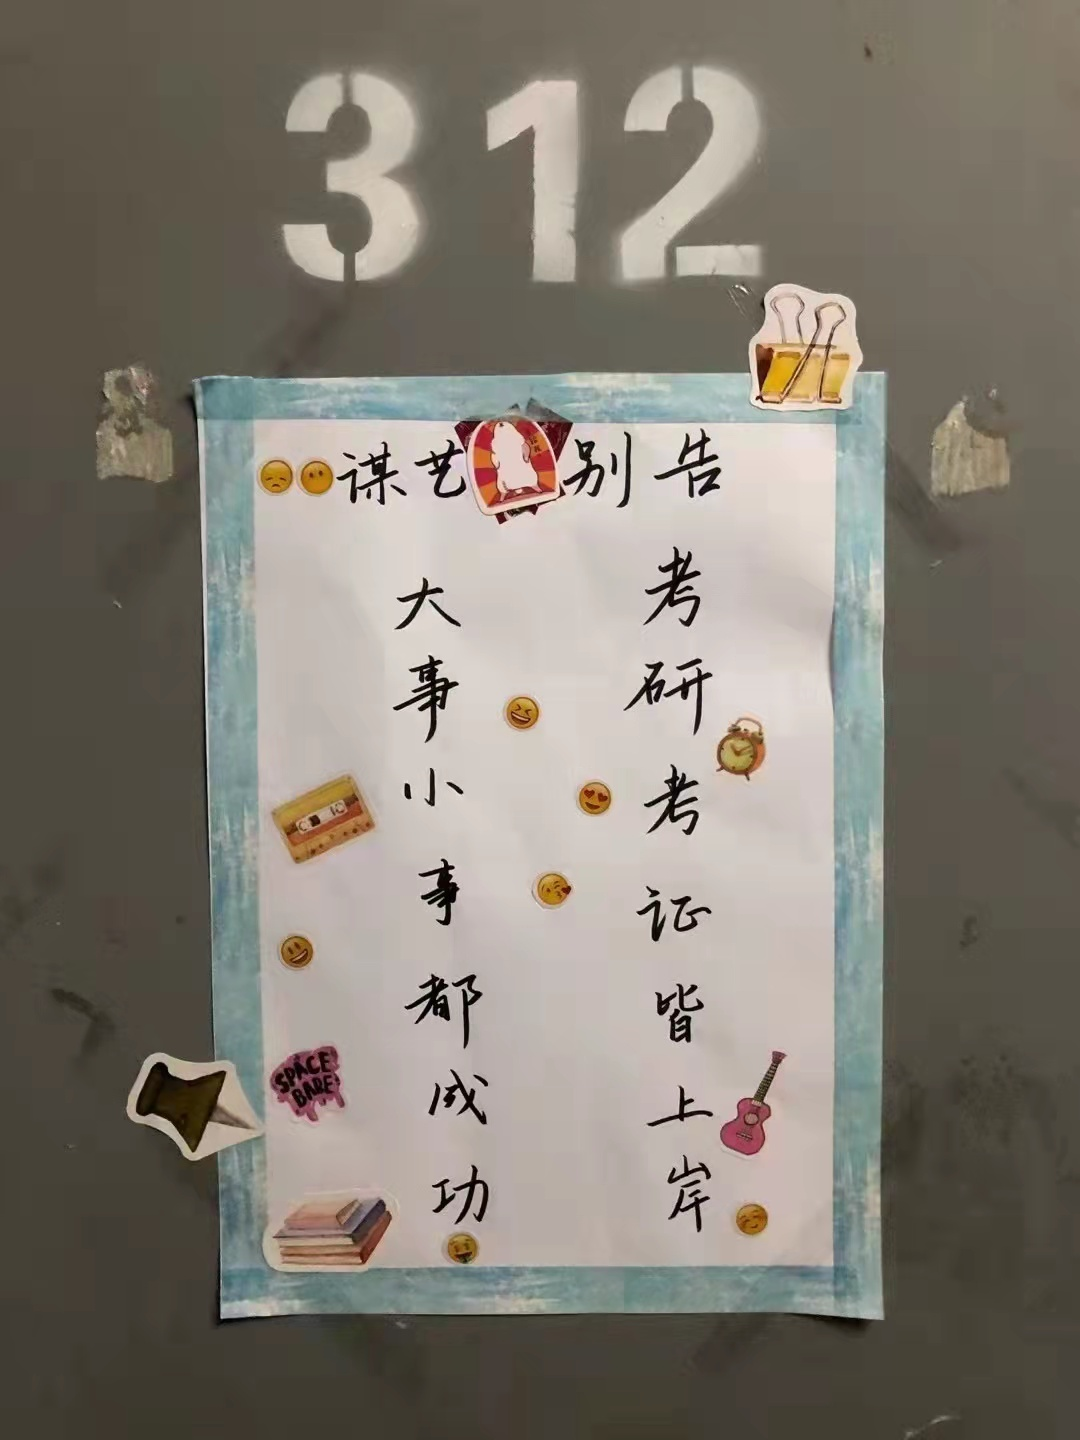 312
告别艺谋
考研考证皆上岸
大事小事都成功
SPACE
BABE